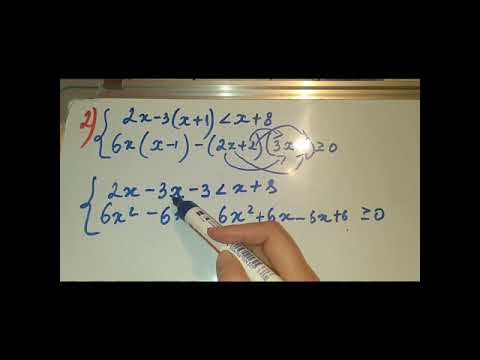 2) { 2x-3(x+1)<x+8
6x(x-1)-(2x+2)(3x ≥0
{ 2x-3x-3<x+8
6x²-6 6x²+6x-6x+6 ≥0